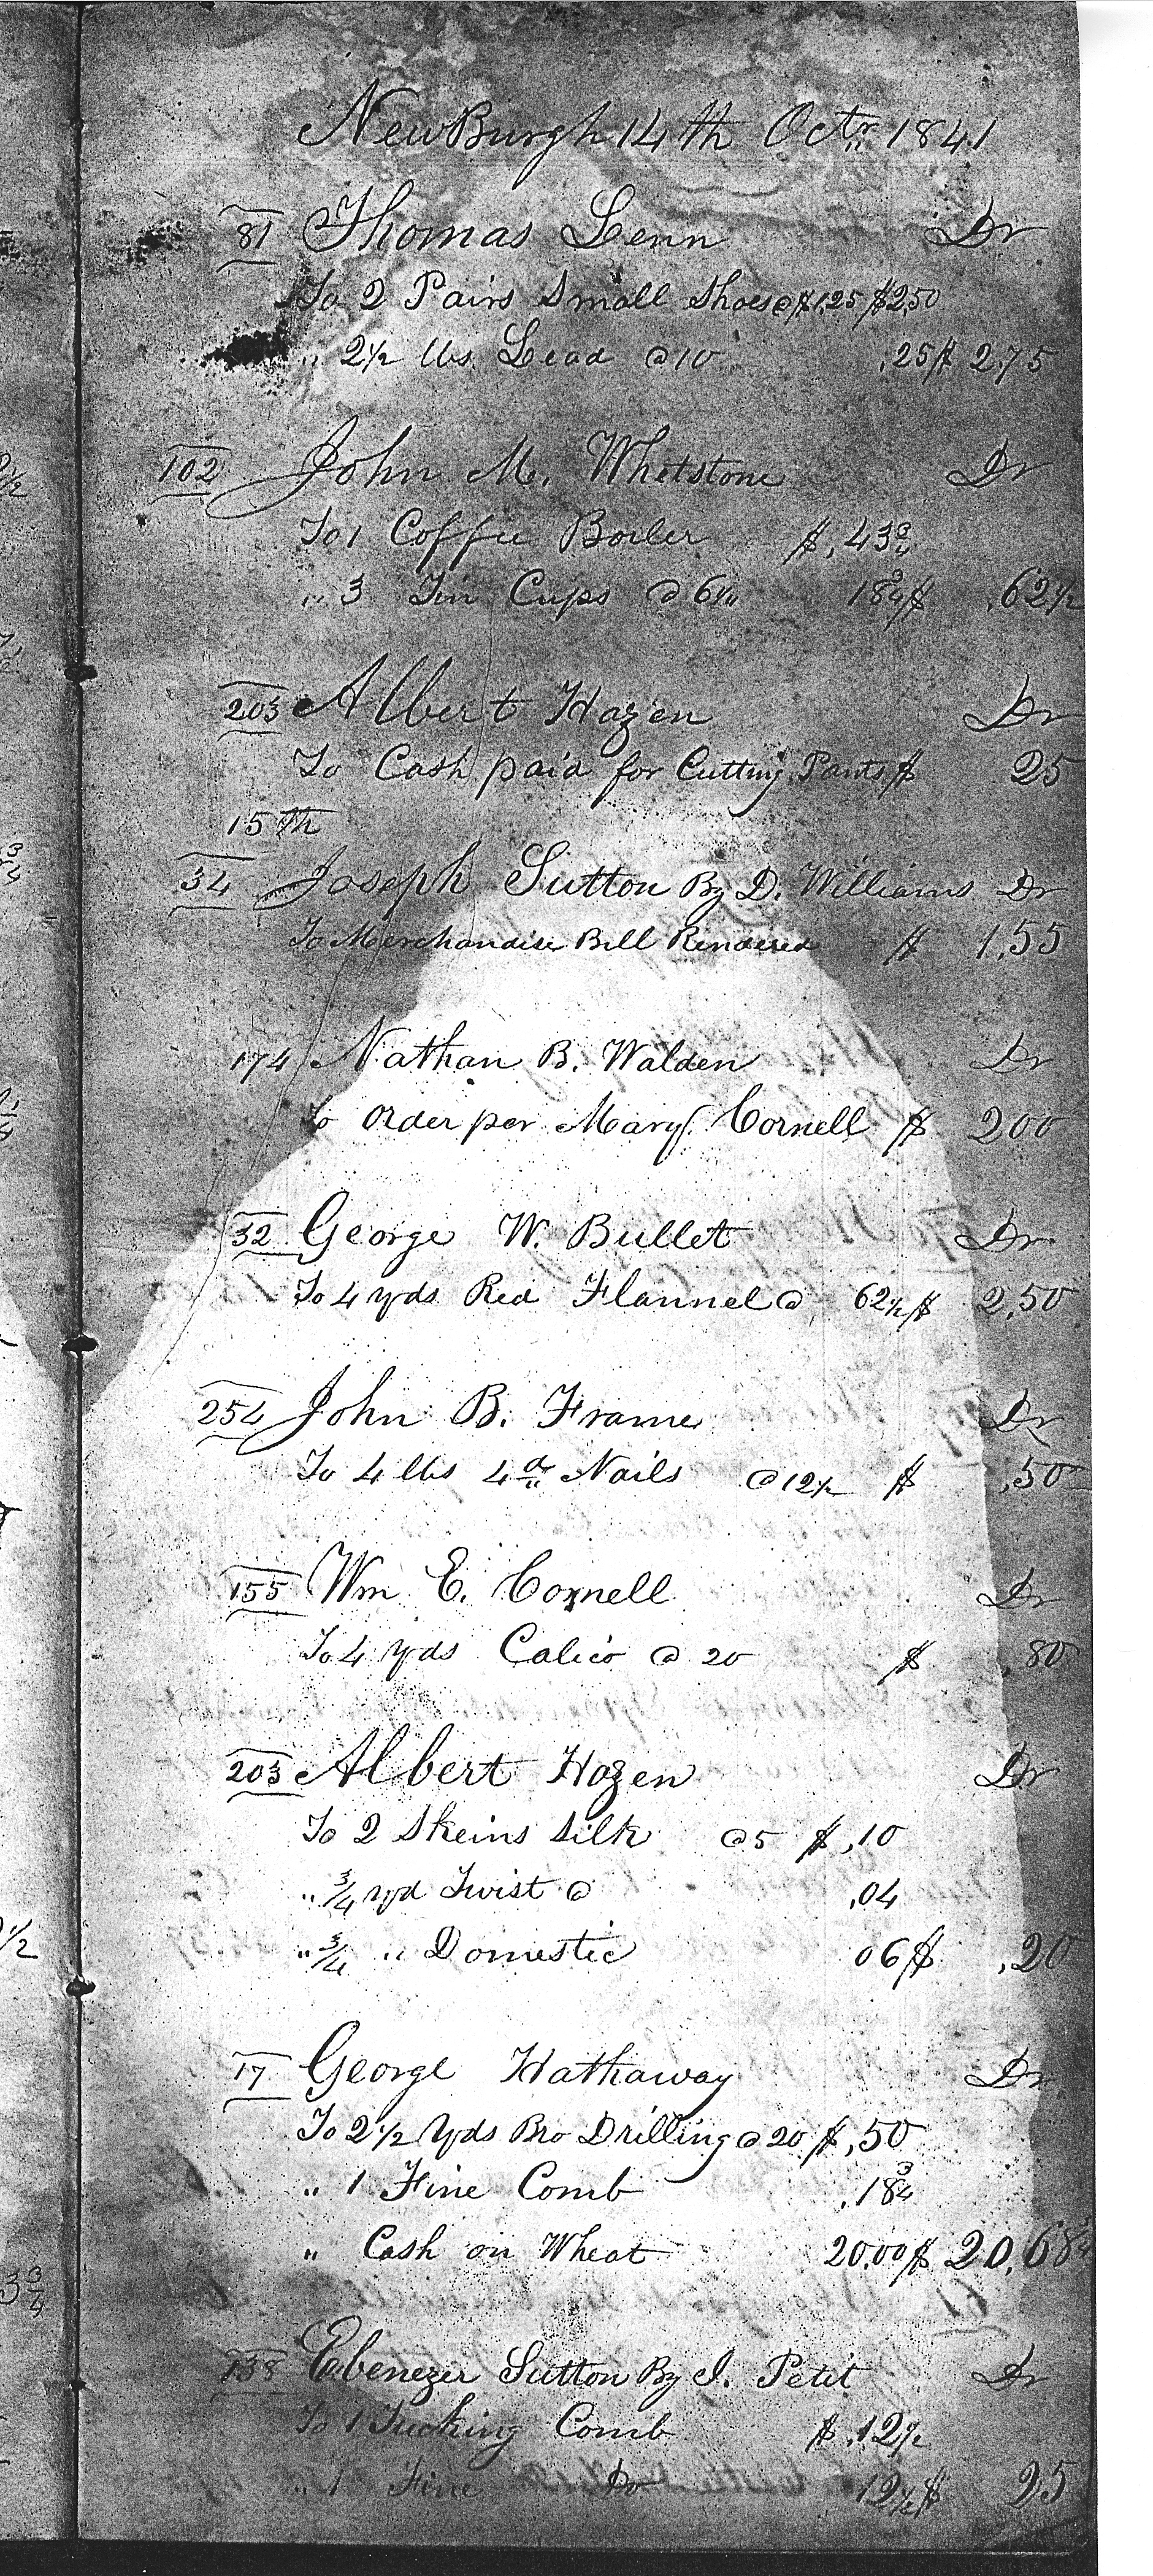 NewBurgh 14th Octr 1841
81 Thomas Lenn Dr
To 2 Pairs Small Shoes @ $1,25 $2,50
" 2½ lbs Lead @ 10 ,25 $ 2,75
102 John M. Whetstone Dr
To 1 Coffee Boiler $ ,43¾
" 3 Tin Cups @ 6¼ 18¾ $ ,62½
203 Albert Hazen Dr
To Cash paid for Cutting Pants $ 25
15th
34 Joseph Sutton By D. Williams Dr
To Merchandise Bill Rendered $ 1,55
174 Nathan B. Walden Dr
To Order per Mary Cornell $ 200
32 George W. Bullet Dr
To 4 yds Red Flannel @ 62½ $ 2,50
254 John B. Frame Dr
To 4 lbs 4d Nails @ 12½ $ ,50
155 Wm E. Cornell Dr
To 4 yds Calico @ 20 $ ,80
203 Albert Hazen Dr
To 2 Skeins Silk @ 5 $ ,10
" ¾ yd Twist @ ,04
" ¾ " Domestic 06 $ ,20
17 George Hathaway Dr
To 2½ Yds Bro Drilling @ 20 $ ,50
" 1 Fine Comb ,18¾
" Cash on Wheat 20,00 $ 20,68¾
138 Ebenezer Sutton By I. Petit Dr
To 1 Tucking Comb $ ,12½
" 1 Fine Do 12½ $ 25